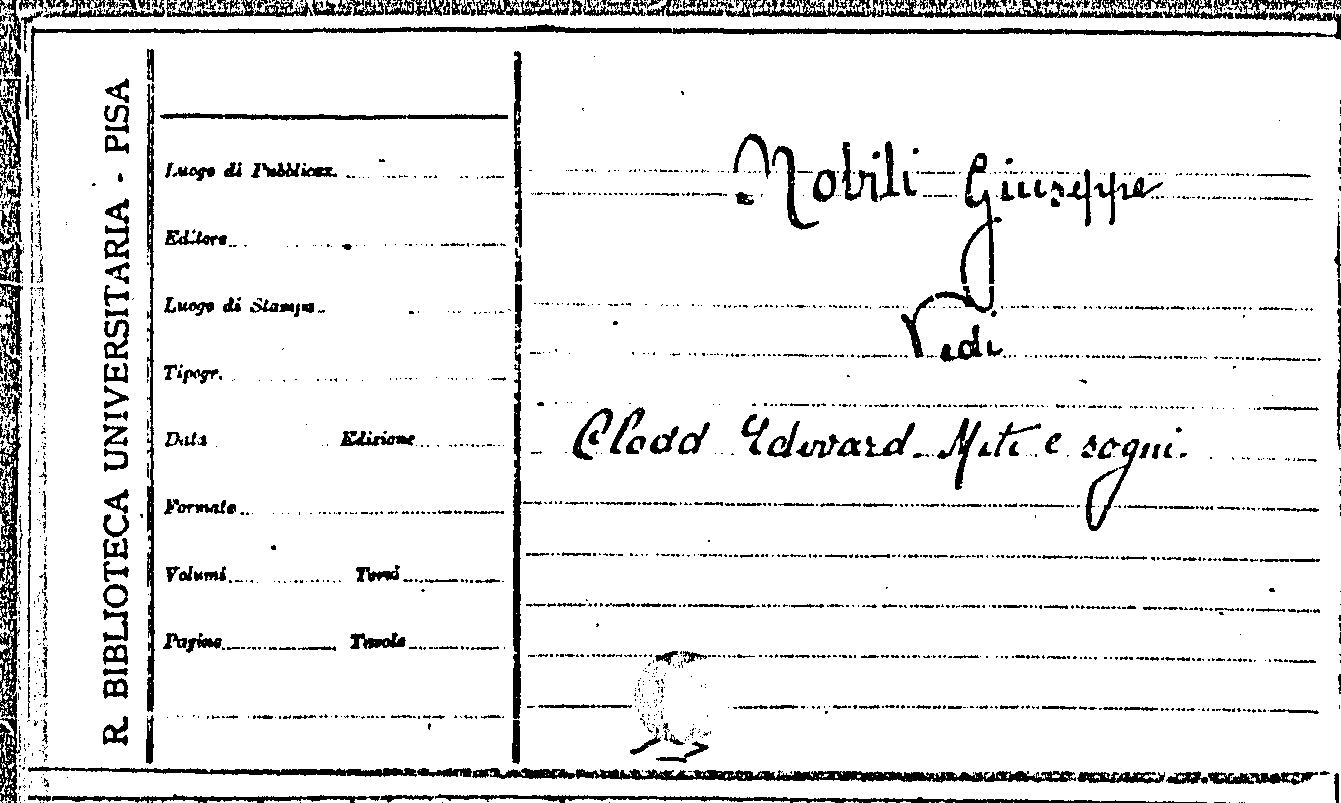 R. BIBLIOTECA UNIVERSITARIA - PISA
Luogo di Pubblicaz.
Editore
Luogo di Stampa
Tipogr.
Data Edizione
Formato
Volumi Tomi
Pagine Tavole
Nobili Giuseppe
Vedi
Clodd Edovard. Miti e sogni.